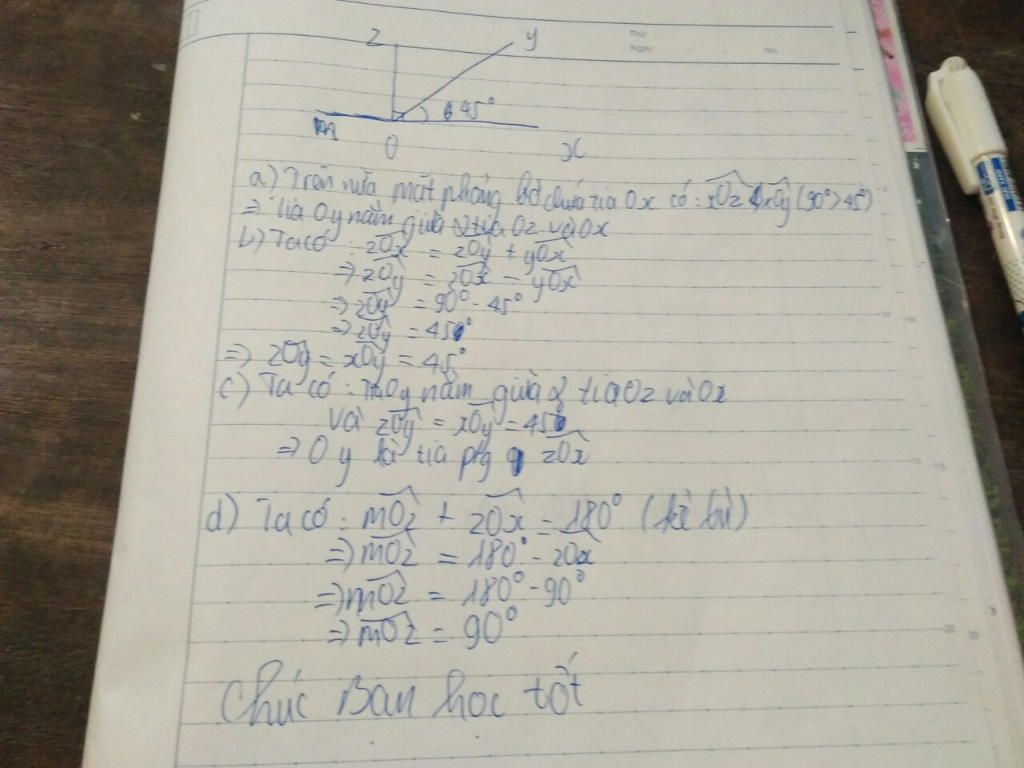 Thứ
Ngày No.
z y
45°
m
O x
a) Trên nửa mặt phẳng bờ chứa tia Ox có: xOz xOy (90° > 45°)
=> Tia Oy nằm giữa 2 tia Oz và Ox
b) Ta có: zOx = zOy + yOx
=> zOy = zOx - yOx
=> zOy = 90° - 45°
=> zOy = 45°
=> zOy = xOy = 45°
c) Ta có: Tia Oy nằm giữa 2 tia Oz và Ox
Và zOy = xOy = 45°
=> Oy là tia pg zOx
d) Ta có: mOz + zOx = 180° (kề bù)
=> mOz = 180° - zOx
=> mOz = 180° - 90°
=> mOz = 90°
Chúc Bạn học tốt